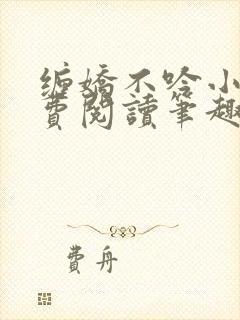 缠嬌不吟小
費閱讀筆趣
費舟